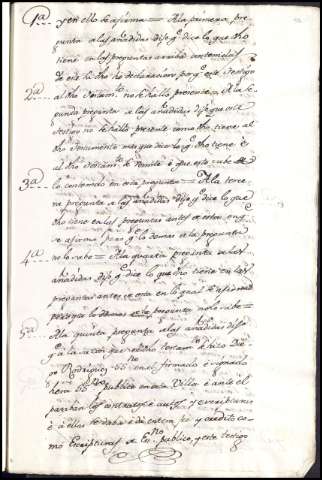 1ª y en ello se afirma = A la primera pre-
gunta a las añadidas dijo q dice lo que dho
tiene en las preguntas arriba
este testigo
2ª al dho testam.to no se hallo presente = A la se-
gunda pregunta a las añadidas dijo que este
testigo no se hallo presente como dho tiene al
dho documento mas que dice lo q dho tiene è
al dho testam.to se remite è que esto sabe de
3ª lo contenido en esta pregunta = A la terce-
ra pregunta a las añadidas dijo q dice lo que
dho tiene en las preguntas antes de esta en q
se afirma pero q lo demas de la pregunta
4ª no lo sabe = A la quarta pregunta a las
añadidas dijo q dice lo que dho tiene en las
preguntas antes de esta en lo qual se afirma
porque lo demas de esta pregunta no lo sabe =
5ª A la quinta pregunta a las añadidas dijo
q a la sazon que se hizo testam.to hizo Die-
go Rodriguez es.no en el firmado è signado
hera es.no publico en esta Villa è ante el
pasaban los contratos è autos y escripturas
è a ellas se daba è da entera fee y credito co-
mo Escripturas de Es.no publico, y este testigo